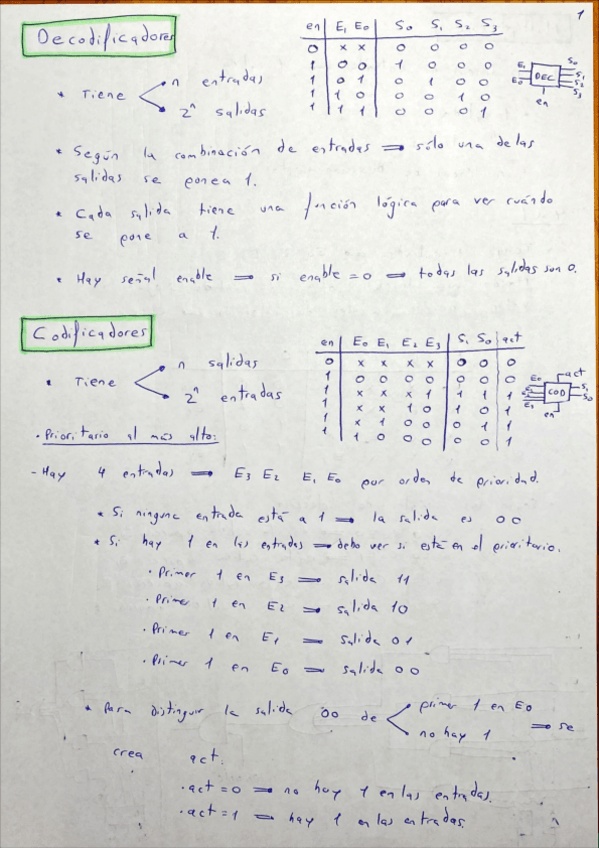 1
Decodificadores
en E1 E0 S0 S1 S2 S3
0 x x 0 0 0 0
1 0 0 1 0 0 0
1 0 1 0 1 0 0
1 1 0 0 0 1 0
1 1 1 0 0 0 1
E1 E0 DEC S0 S1 S2 S3 en
* Tiene
n entradas
2^n salidas
* Según la combinación de entradas ⇒ sólo una de las
salidas se pone a 1.
* Cada salida tiene una función lógica para ver cuándo
se pone a 1.
* Hay señal enable ⇒ si enable = 0 ⇒ todas las salidas son 0.
Codificadores
en E0 E1 E2 E3 S1 S0 act
0 x x x x 0 0 0
1 0 0 0 0 0 0 0
1 x x x 1 1 1 1
1 x x 1 0 1 0 1
1 x 1 0 0 0 1 1
1 1 0 0 0 0 0 1
E0 E3 COD act S1 S0 en
* Tiene
n salidas
2^n entradas
· Prioritario al más alto:
- Hay 4 entradas ⇒ E3 E2 E1 E0 por orden de prioridad.
* Si ninguna entrada está a 1 ⇒ la salida es 00
* Si hay 1 en las entradas ⇒ debo ver si está en el prioritario.
· Primer 1 en E3 ⇒ salida 11
· Primer 1 en E2 ⇒ salida 10
· Primer 1 en E1 ⇒ salida 01
· Primer 1 en E0 ⇒ salida 00
* Para distinguir la salida 00 de
primer 1 en E0
no hay 1
⇒ se
crea act:
· act = 0 ⇒ no hay 1 en las entradas.
· act = 1 ⇒ hay 1 en las entradas.